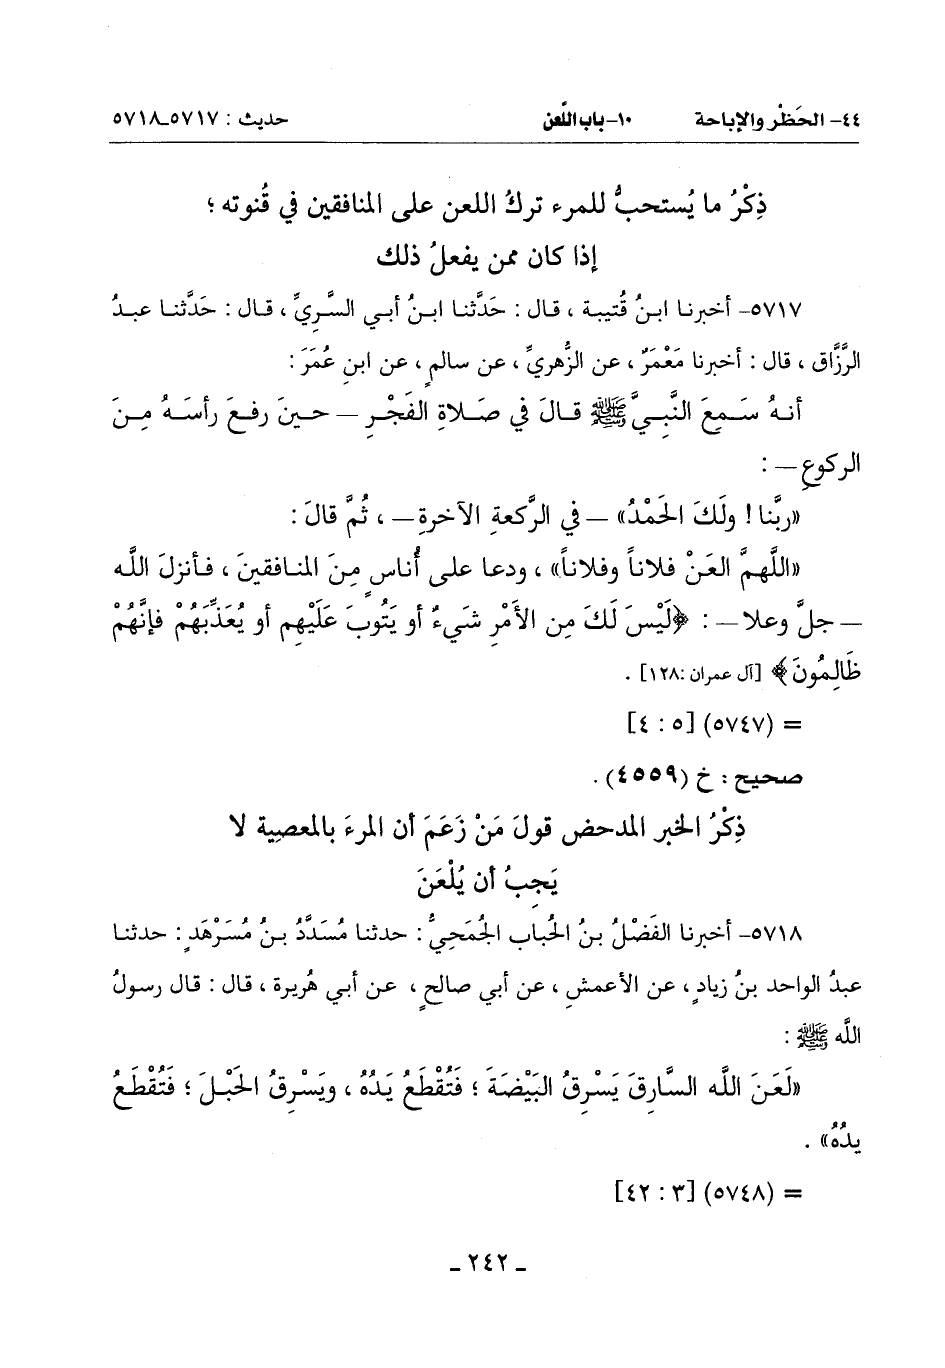 ٤٤- الحَظْر والإباحة ١٠-باب اللَّعن حديث : ٥٧١٧ـ٥٧١٨
ذِكْرُ ما يُستحبُّ للمرء تركُ اللعن على المنافقين في قُنوته ؛
إذا كان ممن يفعلُ ذلك
٥٧١٧- أخبرنا ابنُ قُتيبة ، قال : حَدَّثنا ابنُ أبي السَّريِّ ، قال : حَدَّثنا عبدُ
الرَّزَّاق ، قال : أخبرنا مَعْمَرٌ ، عن الزُّهريِّ ، عن سالمٍ ، عن ابنِ عُمَرَ :
أنهُ سَمِعَ النَّبيَّ ﷺ قالَ في صَلاةِ الفَجْرِ — حينَ رفعَ رأسَهُ مِنَ
الركوعِ — :
«ربَّنا ! ولَكَ الحَمْدُ» — في الرَّكعةِ الآخرةِ — ، ثُمَّ قالَ :
«اللَّهمَّ العَنْ فلاناً وفلاناً» ، ودعا على أُناسٍ مِنَ المنافقينَ ، فأنزلَ اللَّه
— جلَّ وعلا — : ﴿لَيْسَ لَكَ مِن الأَمْرِ شَيءٌ أو يَتُوبَ عَلَيْهِم أو يُعَذِّبَهُمْ فإنَّهُمْ
ظَالِمُونَ﴾ [آل عمران :١٢٨] .
= (٥٧٤٧) [٥ : ٤]
صحيح : خ (٤٥٥٩) .
ذِكْرُ الخبر المدحض قولَ مَنْ زَعَمَ أن المرءَ بالمعصِية لا
يَجِبُ أن يُلْعَنَ
٥٧١٨- أخبرنا الفَضْلُ بنُ الحُباب الجُمَحِيُّ : حدثنا مُسَدَّدُ بنُ مُسَرْهَدٍ : حدثنا
عبدُ الواحد بنُ زيادٍ ، عن الأعمشِ ، عن أبي صالحٍ ، عن أبي هُريرة ، قال : قال رسولُ
اللَّه ﷺ :
«لَعَنَ اللَّه السَّارِقَ يَسْرِقُ البَيْضَةَ ؛ فَتُقْطَعُ يَدُهُ ، ويَسْرِقُ الحَبْلَ ؛ فَتُقْطَعُ
يدُهُ» .
= (٥٧٤٨) [٣ : ٤٢]
ـ ٢٤٢ ـ